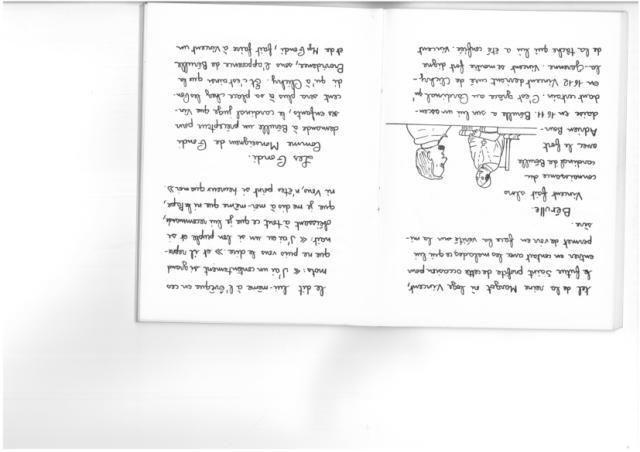 tel de la reine Margot où loge Vincent,
le futur Saint profite de cette occasion pour
entrer en contact avec les malades ce qui lui
permet de voir en face la vérité sur la mi-
sère.
Bérulle.
Vincent fait alors
connaissance du
cardinal de Bérulle
avec le fort
Adrien Bour-
doise en 1611. Bérulle a sur lui un ascen-
dant certain. C'est grâce au Cardinal qu'
en 1612 Vincent devient curé de Clichy-
la-Garenne. Vincent se montre fort digne
de la tâche qui lui a été confiée. Vincent
le dit lui-même à l'évêque en ces
mots: « J'ai un contentement si grand
que ne puis vous le dire » et il repre-
nait: « J'ai eu un si bon peuple et si
obéissant à tout ce que je lui recommand,
que je me dis à moi-même que ni le Pape,
ni Vous, n'êtes point si heureux que moi ».
Les Gondi.
Comme Monseigneur de Gondi
demande à Bérulle un précepteur pour
ses enfants, le cardinal juge que Vin-
cent sera plus à sa place chez les Gon-
di qu'à Clichy. Et c'est ainsi que la
Providence, sous l'apparence de Bérulle
et de Mgr Gondi, fait faire à Vincent un